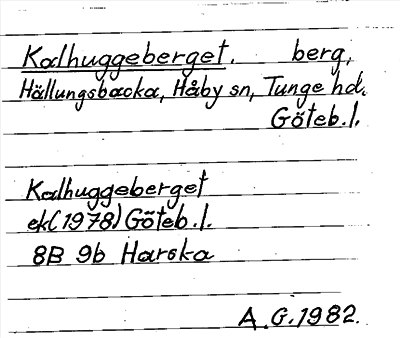 Kalhuggeberget. berg,
Hällungsbacka, Håby sn, Tunge hd.
Göteb.l.
Kalhuggeberget
ek(1978) Göteb.l.
8B 9b Harska
A.G.1982.